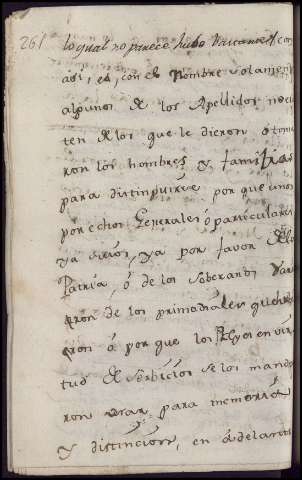 261 lo qual no parece hubo bastante con
asi, es, con el Nombre solamente
algunos de los Apellidos no
ten de los que le dieron o toma
ron los hombres y familias
para distinguirse, por que unos
por echos Generales o particulares
ya sirvio, ya por favor de la
Patria, o de los soberanos
rron de los primordiales que
ron o por que los Reyes en vir
tud de servicios se los manda
ron usar para memoria
y distincion, en adelante